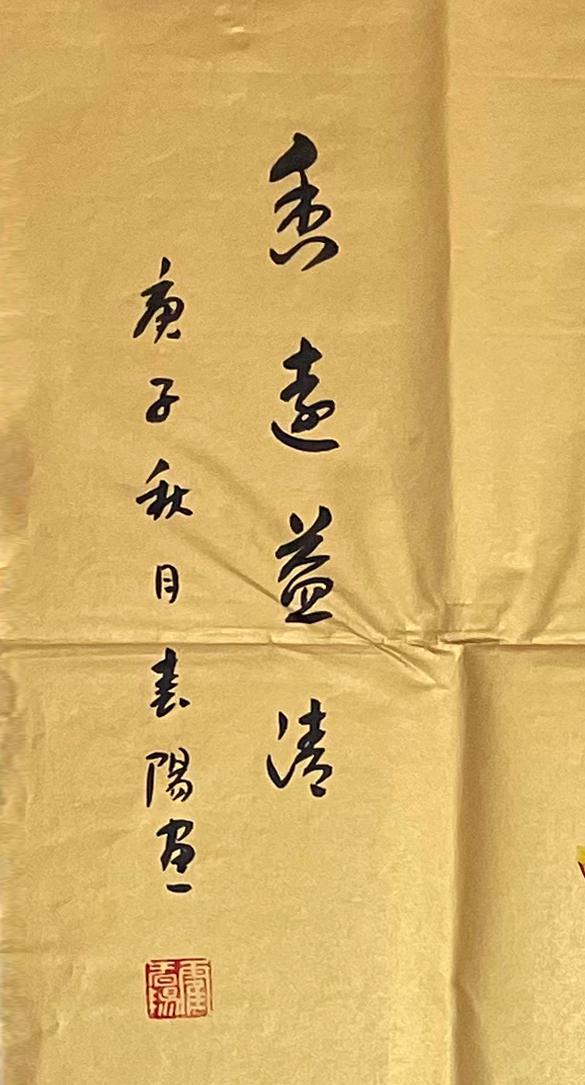 香遠益清
庚子秋月春陽畫